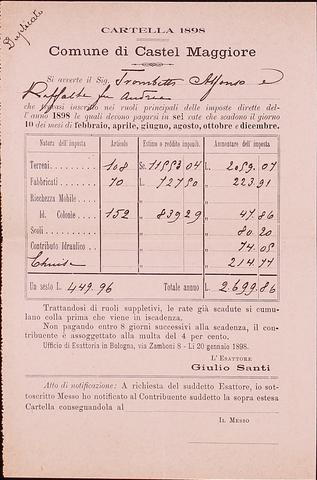 Duplicato
CARTELLA 1898
Comune di Castel Maggiore
Si avverte il Sig. Trombetti Alfonso e
Raffaele fu Andrea
che trovasi inscritto nei ruoli principali delle imposte dirette del-
l'anno 1898 le quali devono pagarsi in sei rate che scadono il giorno
10 dei mesi di febbraio, aprile, giugno, agosto, ottobre e dicembre.
Natura dell'imposta Articolo Estimo o reddito imponib. Ammontare dell'imposta
Terreni . . . . 108 Sc. 11553 04 L. 2059. 07
Fabbricati . . . . 70 L. 727 50 „ 223. 91
Ricchezza Mobile . . . „ „
Id. Colonie . . . . 152 „ 839 29 „ 47. 86
Scoli . . . . . „ „ 80. 20
Contributo Idraulico . . „ „ 74. 05
Chiuse „ 214. 77
Un sesto L. 449. 96 Totale annuo L. 2.699. 86
Trattandosi di ruoli suppletivi, le rate già scadute si cumu-
lano colla prima che viene in iscadenza.
Non pagando entro 8 giorni successivi alla scadenza, il con-
tribuente è assoggettato alla multa del 4 per cento.
Ufficio di Esattoria in Bologna, via Zamboni 8 - Li 20 gennaio 1898.
L'ESATTORE
Giulio Santi
Atto di notificazione: A richiesta del suddetto Esattore, io sot-
toscritto Messo ho notificato al Contribuente suddetto la sopra estesa
Cartella consegnandola al
IL MESSO